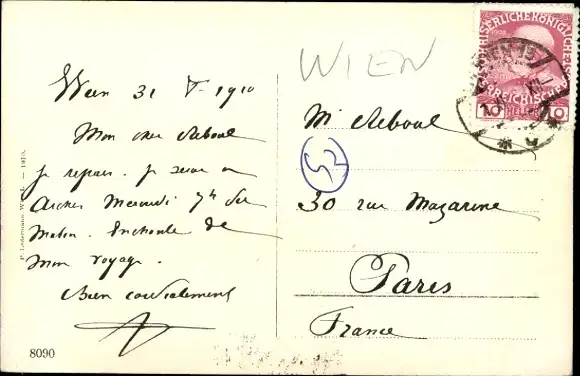 Wien 31 V 1910
Mon cher Reboul
Je repars. Je serai
Mercredi 7h du
Matin. Enchanté de
Mon voyage.
Bien cordialement
WIEN
Mr Reboul
52
30 rue Mazarine
Paris
France
KAISERLICHE KÖNIGLICHE
1908
WIEN
10 HELLER 10
P. Ledermann, Wien I. — 1910.
8090